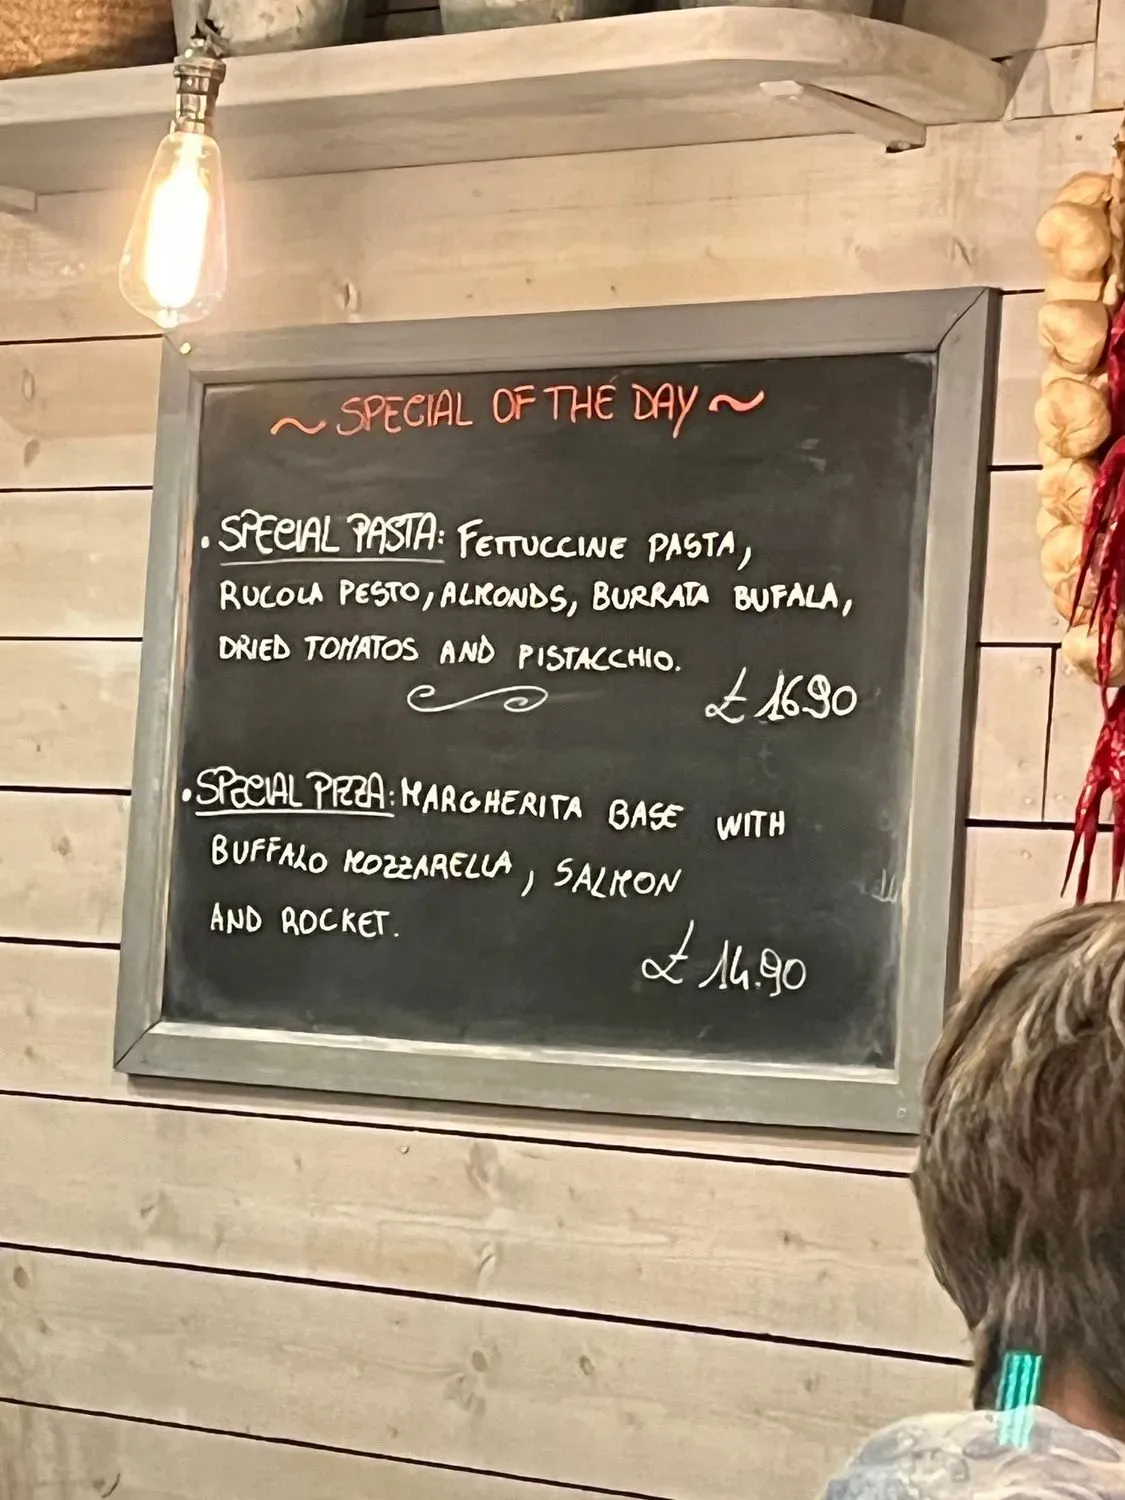 ~ SPECIAL OF THE DAY ~
• SPECIAL PASTA: FETTUCCINE PASTA,
RUCOLA PESTO, ALMONDS, BURRATA BUFALA,
DRIED TOMATOS AND PISTACCHIO.
£ 16.90
• SPECIAL PIZZA: MARGHERITA BASE WITH
BUFFALO MOZZARELLA, SALMON
AND ROCKET.
£ 14.90